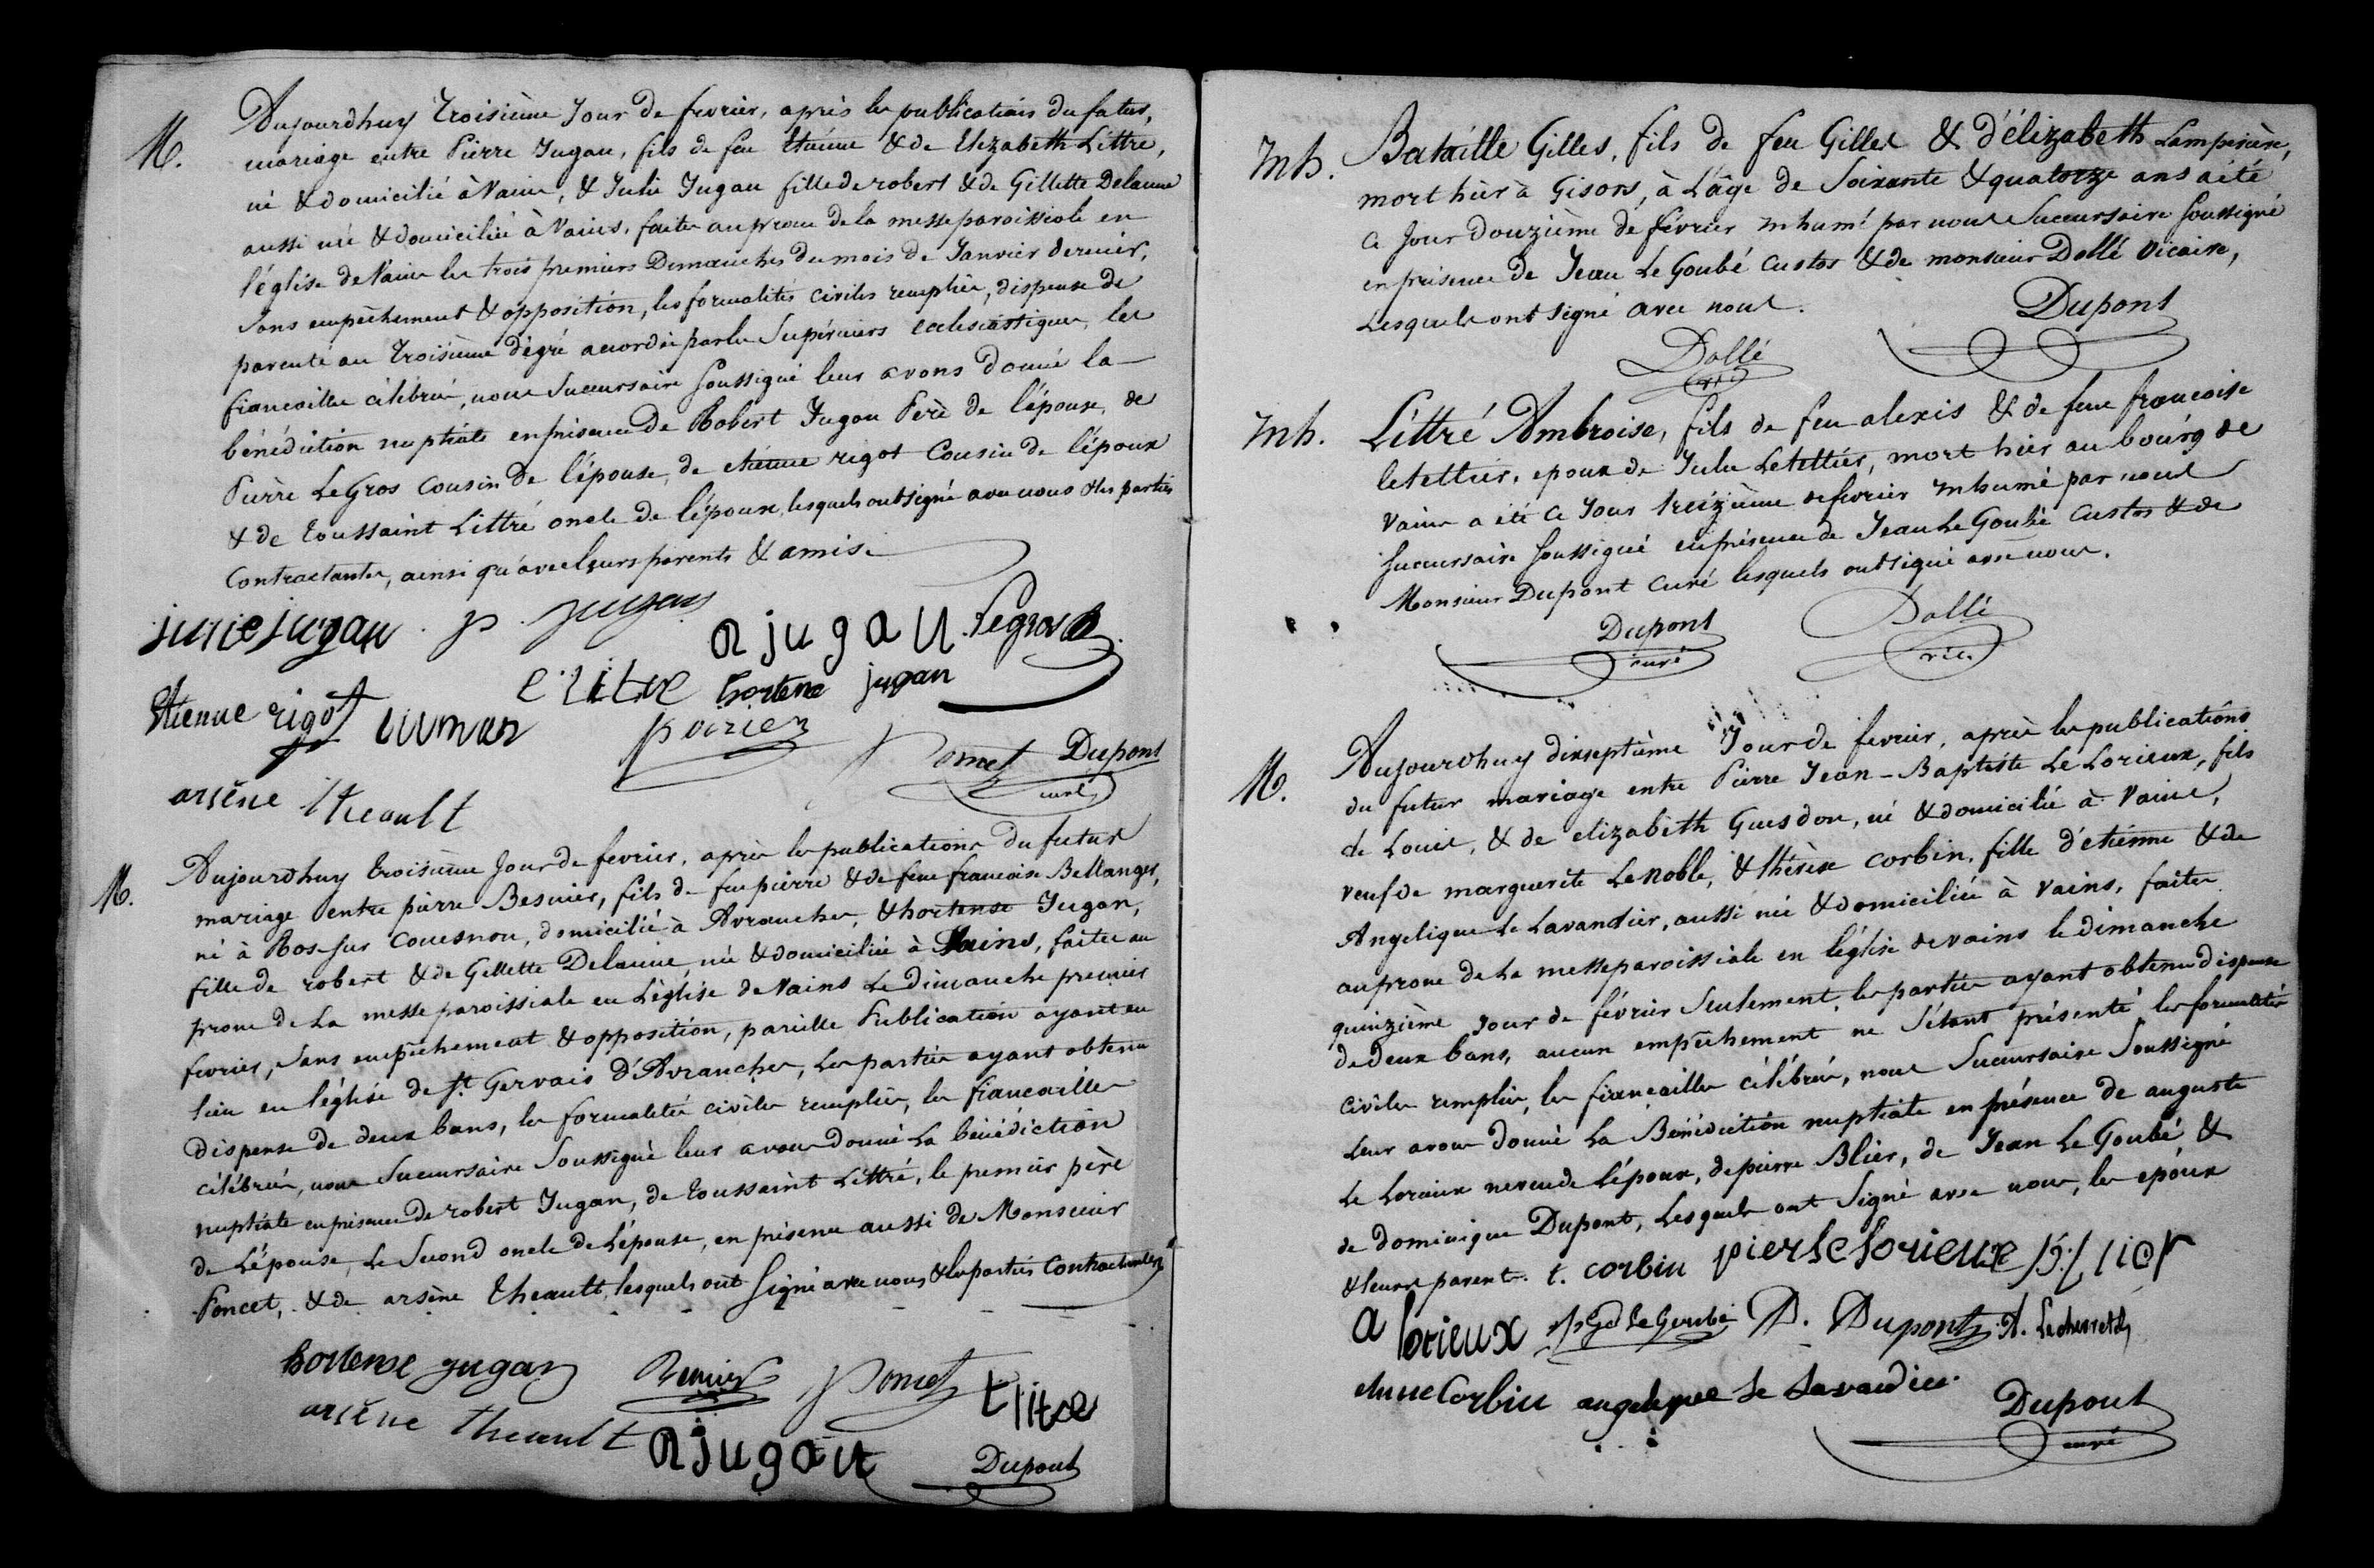 M.
Aujourdhuy troisième Jour de fevrier, après les publications du futur,
mariage entre Pierre Jugan, fils de feu Etienne & de Elizabeth Littre,
né & domicilié à Vains, & Julie Jugan fille de robert & de Gillette Delaune
aussi née & domiciliée à Vains, faites au prone de la messe paroissiale en
l'église de Vains les trois premiers Dimanches du mois de Janvier dernier,
Sans empêchement & opposition, les formalités civiles remplies, dispense de
parenté au troisième dégré accordée par les Supérieurs ecclésiastiques, les
fiancailles célébrées, nous Succursaire Soussigné leur avons donné la
bénédiction nuptiale en présence de Robert Jugan Père de l'épouse, de
Pierre LeGros cousin de l'épouse, de etienne rigot Cousin de l'époux
& de Toussaint Littré oncle de l'époux, lesquels ont signé avec nous & les parties
Contractantes, ainsi qu'avec leurs parents & amis.
julie jugan. p. jugan
R jugan Legros
Etienne rigot
hortense jugan
poirier
Poncet Dupont
curé
arsène théault
M.
Aujourdhuy troisième Jour de fevrier, après les publications du futur
mariage entre pierre Besnier, fils de feu pierre & de feue francoise Bellanger,
né à Bos sur Couesnon, domicilié à Avranches, & hortense Jugan,
fille de robert & de Gillette Delaune, née & domiciliée à Vains, faites au
prone de La messe paroissiale en L'église de Vains Le Dimanche premier
fevrier, Sans empêchement & opposition, pareille Publication ayant eu
lieu en l'église de St Gervais d'Avranches, Les parties ayant obtenu
dispense de deux bans, les formalités civiles remplies, les fiancailles
célébrées, nous Succursaire Soussigné leur avons donné La bénédiction
nuptiale en présence de robert Jugan, de Toussaint Littré, le premier père
de L'épouse, Le Second oncle de L'épouse, en présence aussi de Monsieur
Poncet, & de arsène Theault, lesquels ont Signé avec nous & les parties Contractantes
hortense jugan Besnier Poncet
t litre
arsène theault R jugan Dupont
Inh.
Bataille Gilles, fils de feu Gilles & d'élizabeth Lamperière,
mort hier à Gisors, à L'âge de Soixante & quatorze ans a été
ce Jour douzième de février Inhumé par nous Succursaire Soussigné
en présence de Jean Le Goubé Custos & de monsieur Dollé vicaire,
Lesquels ont Signé avec nous.
Dupont
Dollé
vic
Inh.
Littré Ambroise, fils de feu alexis & de feue francoise
letellier, epoux de Julie Letellier, mort hier au bourg de
Vains a été ce Jour treizième de fevrier Inhumé par nous
Succursaire Soussigné en présence de Jean Le Goubé Custos & de
Monsieur Dupont curé lesquels ont signé avec nous.
Dupont
curé
Dollé
vic.
M.
Aujourdhuy dixseptième Jour de fevrier, après les publications
du futur mariage entre Pierre Jean-Baptiste Le Lorieux, fils
de Louis, & de elizabeth Guesdon, né & domicilié à Vains,
veuf de marguerite Le noble, & thérèse corbin, fille d'etienne & de
Angelique Le Lavandier, aussi née & domiciliée à Vains, faites
au prone de La messe paroissiale en l'église de vains le dimanche
quinzième Jour de février Seulement, les parties ayant obtenu dispense
de deux bans, aucun empêchement ne S'étant présenté les formalités
civiles remplies, les fiancailles célébrées, nous Succursaire Soussigné
Leur avons donné La Bénédiction nuptiale en présence de auguste
Le Lorieux neveu de L'époux, de pierre Blier, de Jean Le Goubé &
de dominique Dupont, Lesquels ont Signé avec nous, les epoux
& leurs parents. t. corbin pier le lorieux p. blier
a lorieux Le Goubé D. Dupont
anne Corbin angelique le Lavandier
Dupont
curé